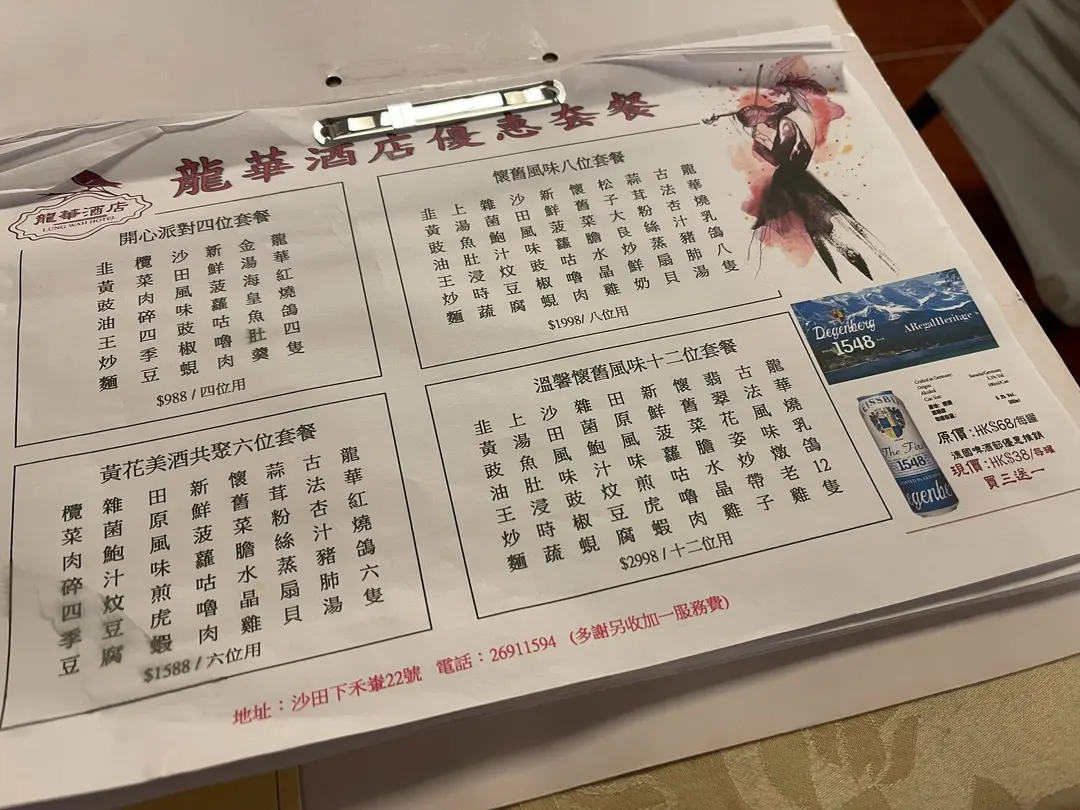 龍華酒店優惠套餐
龍華酒店
LUNG WAH HOTEL
開心派對四位套餐
龍華紅燒鴿四隻
金湯海皇魚肚羹
新鮮菠蘿咕嚕肉
沙田風味豉椒蜆
欖菜肉碎四季豆
韭黃豉油王炒麵
$988 / 四位用
懷舊風味八位套餐
龍華燒乳鴿八隻
古法杏汁豬肺湯
蒜茸粉絲蒸扇貝
松子大良炒鮮奶
懷舊菜膽水晶雞
新鮮菠蘿咕嚕肉
沙田風味豉椒蜆
雜菌鮑汁炆豆腐
上湯魚肚浸時蔬
韭黃豉油王炒麵
$1998/ 八位用
黃花美酒共聚六位套餐
龍華紅燒鴿六隻
古法杏汁豬肺湯
蒜茸粉絲蒸扇貝
懷舊菜膽水晶雞
新鮮菠蘿咕嚕肉
田原風味煎虎蝦
雜菌鮑汁炆豆腐
欖菜肉碎四季豆
$1588 / 六位用
溫馨懷舊風味十二位套餐
龍華燒乳鴿12隻
古法風味燉老雞
翡翠花姿炒帶子
懷舊菜膽水晶雞
新鮮菠蘿咕嚕肉
田原風味煎虎蝦
雜菌鮑汁炆豆腐
沙田風味豉椒蜆
上湯魚肚浸時蔬
韭黃豉油王炒麵
$2998 / 十二位用
Degenberg
1548
ARegalHeritage
Crafted in Germany
Origin:
Alcohol
Can Size
Bavaria/Germany
500ml/Can
The
1548
原價:HK$68/每罐
德國啤酒節優惠推銷
現價:HK$38/每罐
買三送一
地址：沙田下禾輋22號 電話：26911594 (多謝另收加一服務費)